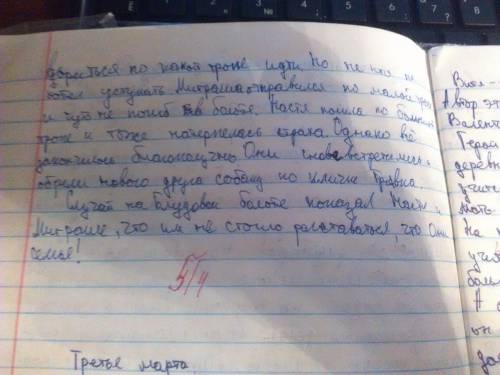 по какой тропе идти Но, не кто не
хотел уступать Митраша отправился по малой тропе
и чуть не погиб в болоте. Настя пошла по большой
тропе и тоже натерпелась страха. Однако всё
закончилось благополучно Они снова встретились и
обрели нового друга собаку по кличке Травка.
Случай на Блудовом болоте показал Насте и
Митраше, что им не стоило расставаться, что Они
семья!
5/4
Третье марта
Автор эт
Валенти
Герой
дерев
учит
На
учи
А
он